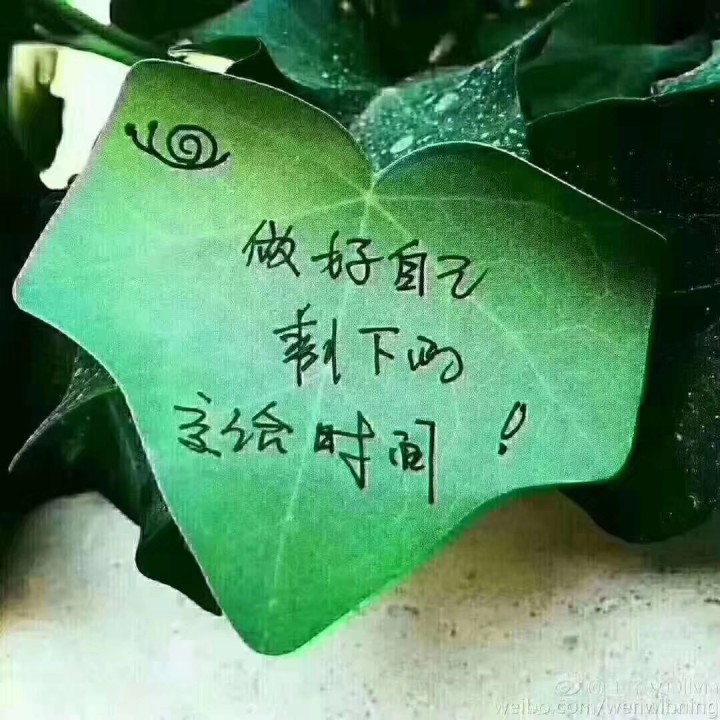 做好自己
剩下的
交给时间！
weibo.com/wenwinning